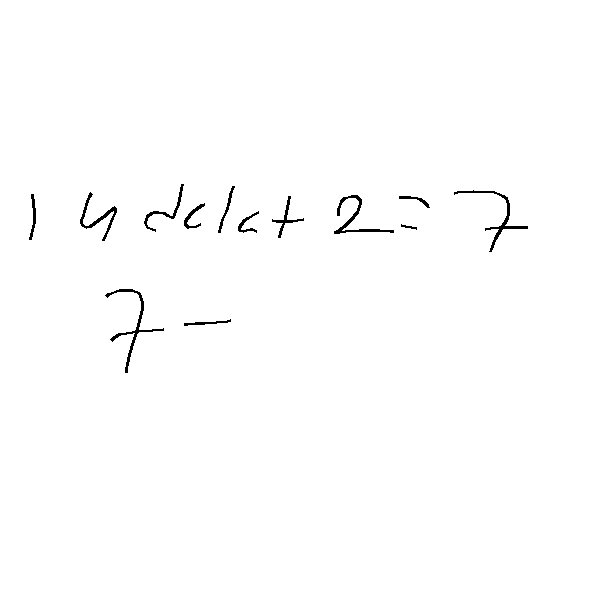 14 delat 2 = 7
7 -